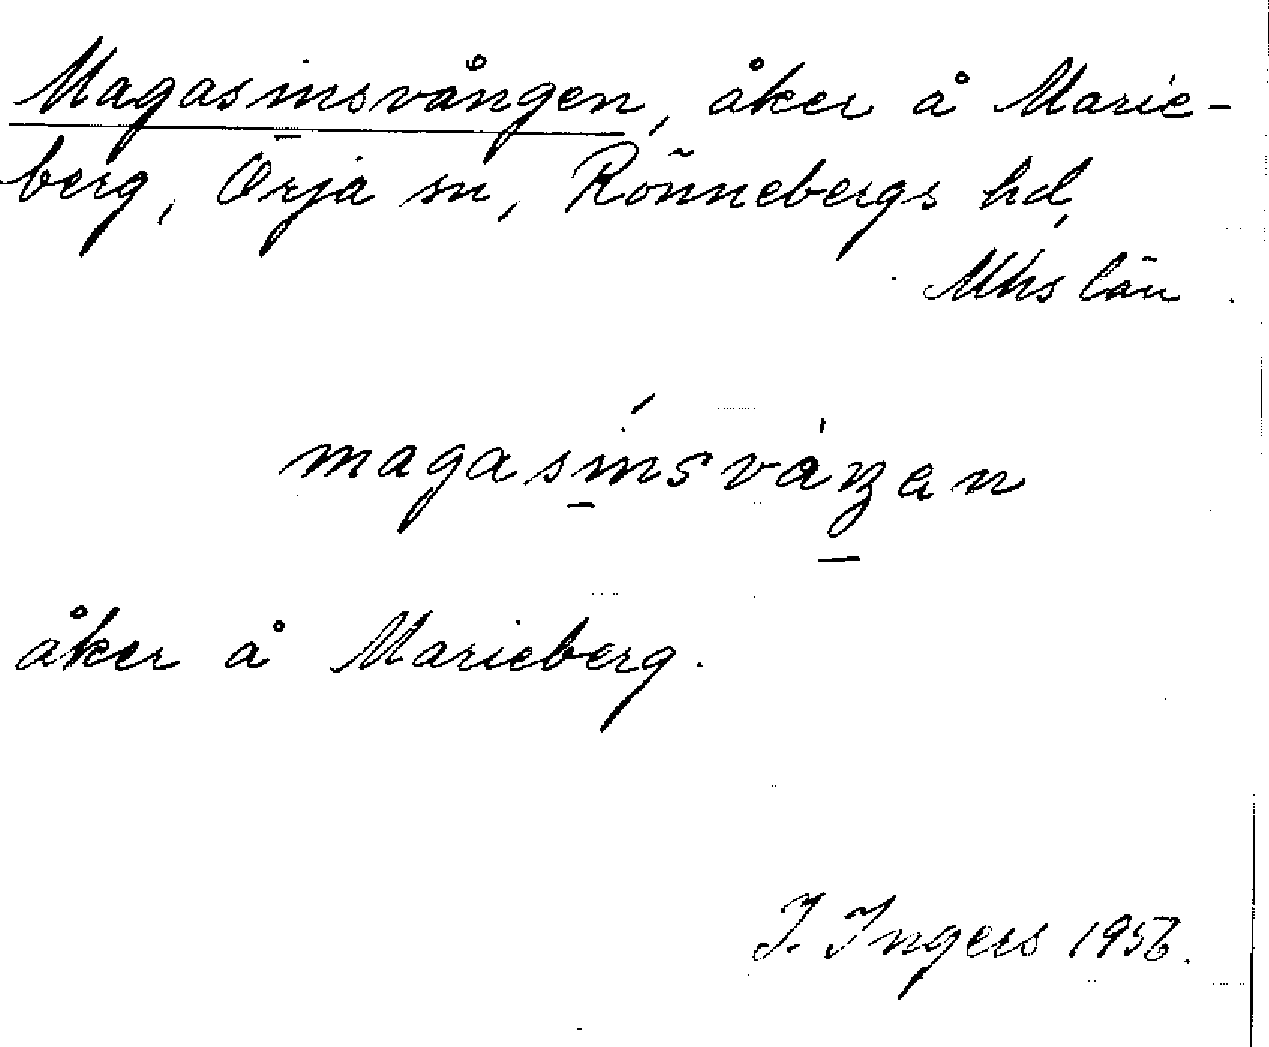 Magasinsvången, åker å Marie-
berg, Örja sn, Rönnebergs hd,
Mhs län
magasinsváŋan
åker å Marieberg.
I. Ingers 1956.